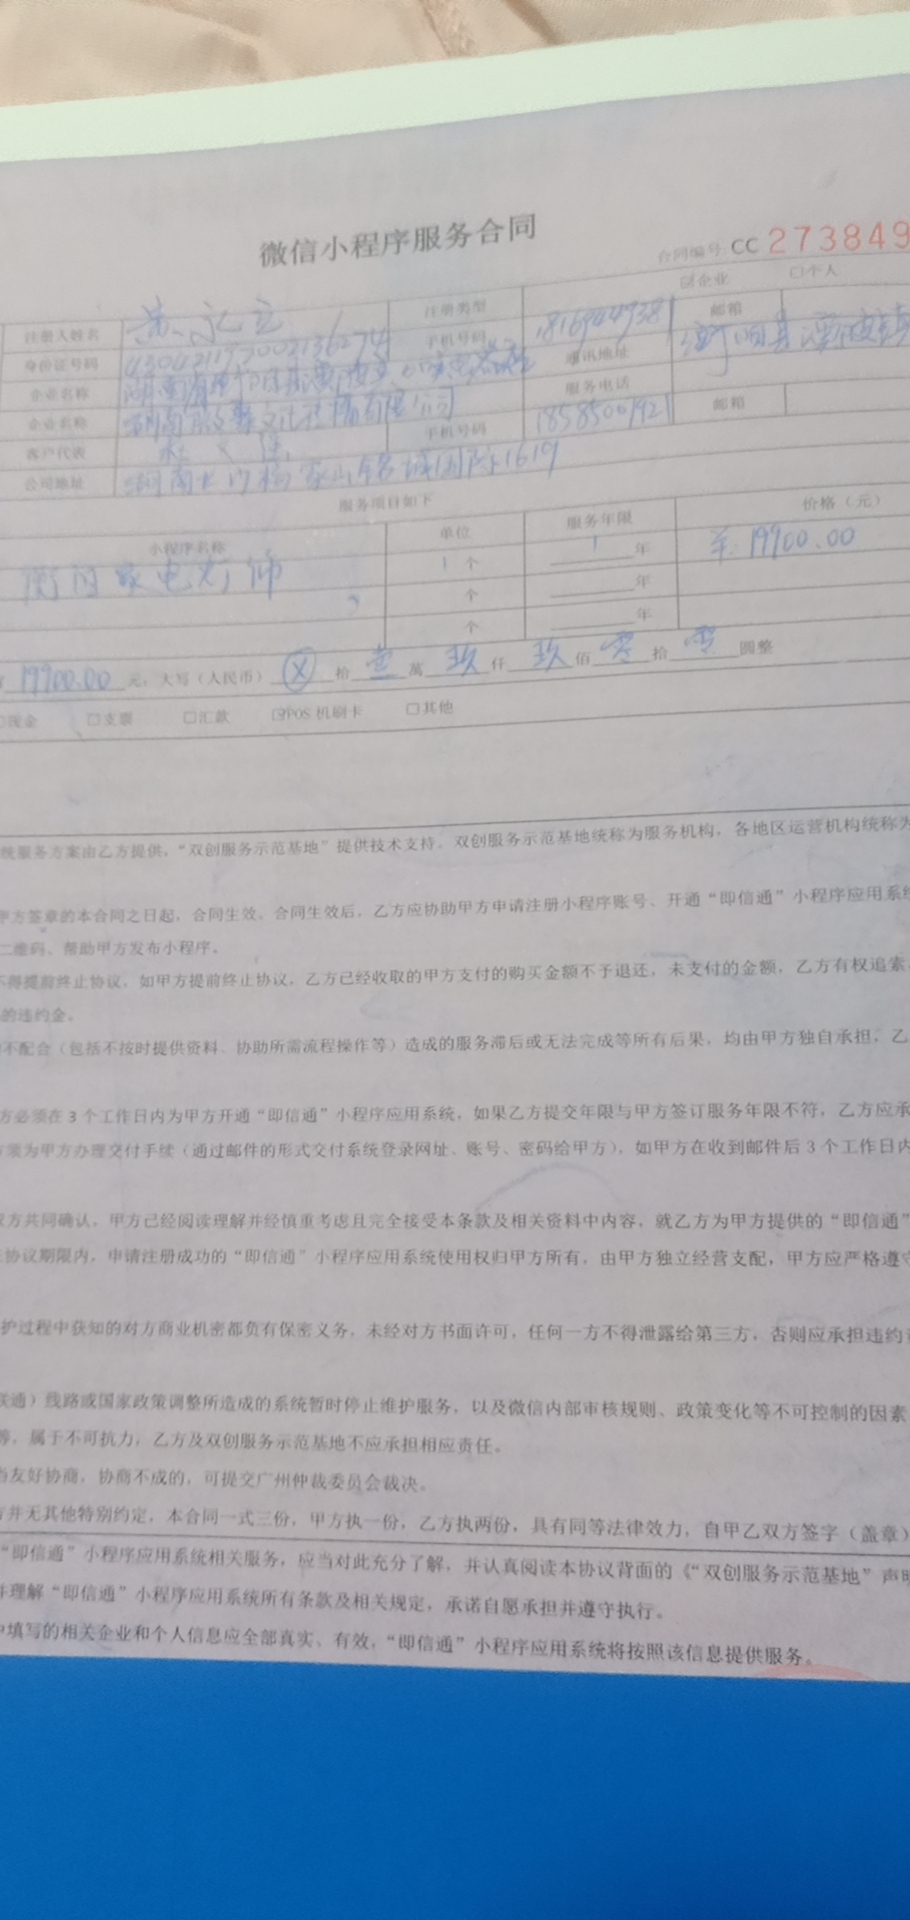 微信小程序服务合同
合同编号: CC 273849
注册人姓名 注册类型 ☑企业 ☐个人
身份证号码 手机号码 邮箱
企业名称 通讯地址
企业名称 服务电话
客户代表 手机号码 18585001921 邮箱
公司地址 1619
服务项目如下
小程序名称 单位 服务年限 价格（元）
衡阳家电灯饰 1 个 1 年 ¥ 19900.00
个 年
个 年
19900.00 元，大写（人民币） ⓧ 拾 壹 萬 玖 仟 玖 佰 零 拾 零 圆整
☐现金 ☐支票 ☐汇款 ☑POS 机刷卡 ☐其他
统服务方案由乙方提供，“双创服务示范基地”提供技术支持。双创服务示范基地统称为服务机构，各地区运营机构统称为
甲方签章的本合同之日起，合同生效。合同生效后，乙方应协助甲方申请注册小程序账号、开通“即信通”小程序应用系统
二维码、帮助甲方发布小程序。
不得提前终止协议，如甲方提前终止协议，乙方已经收取的甲方支付的购买金额不予退还，未支付的金额，乙方有权追索
的违约金。
不配合（包括不按时提供资料、协助所需流程操作等）造成的服务滞后或无法完成等所有后果，均由甲方独自承担，乙
方必须在 3 个工作日内为甲方开通“即信通”小程序应用系统，如果乙方提交年限与甲方签订服务年限不符，乙方应承
须为甲方办理交付手续（通过邮件的形式交付系统登录网址、账号、密码给甲方），如甲方在收到邮件后 3 个工作日内
双方共同确认，甲方已经阅读理解并经慎重考虑且完全接受本条款及相关资料中内容，就乙方为甲方提供的“即信通”
协议期限内，申请注册成功的“即信通”小程序应用系统使用权归甲方所有，由甲方独立经营支配，甲方应严格遵守
护过程中获知的对方商业机密都负有保密义务，未经对方书面许可，任何一方不得泄露给第三方，否则应承担违约
联通）线路或国家政策调整所造成的系统暂时停止维护服务，以及微信内部审核规则、政策变化等不可控制的因素
等，属于不可抗力，乙方及双创服务示范基地不应承担相应责任。
当友好协商，协商不成的，可提交广州仲裁委员会裁决。
方并无其他特别约定，本合同一式三份，甲方执一份，乙方执两份，具有同等法律效力，自甲乙双方签字（盖章）
“即信通”小程序应用系统相关服务，应当对此充分了解，并认真阅读本协议背面的《“双创服务示范基地”声明
并理解“即信通”小程序应用系统所有条款及相关规定，承诺自愿承担并遵守执行。
中填写的相关企业和个人信息应全部真实、有效，“即信通”小程序应用系统将按照该信息提供服务。